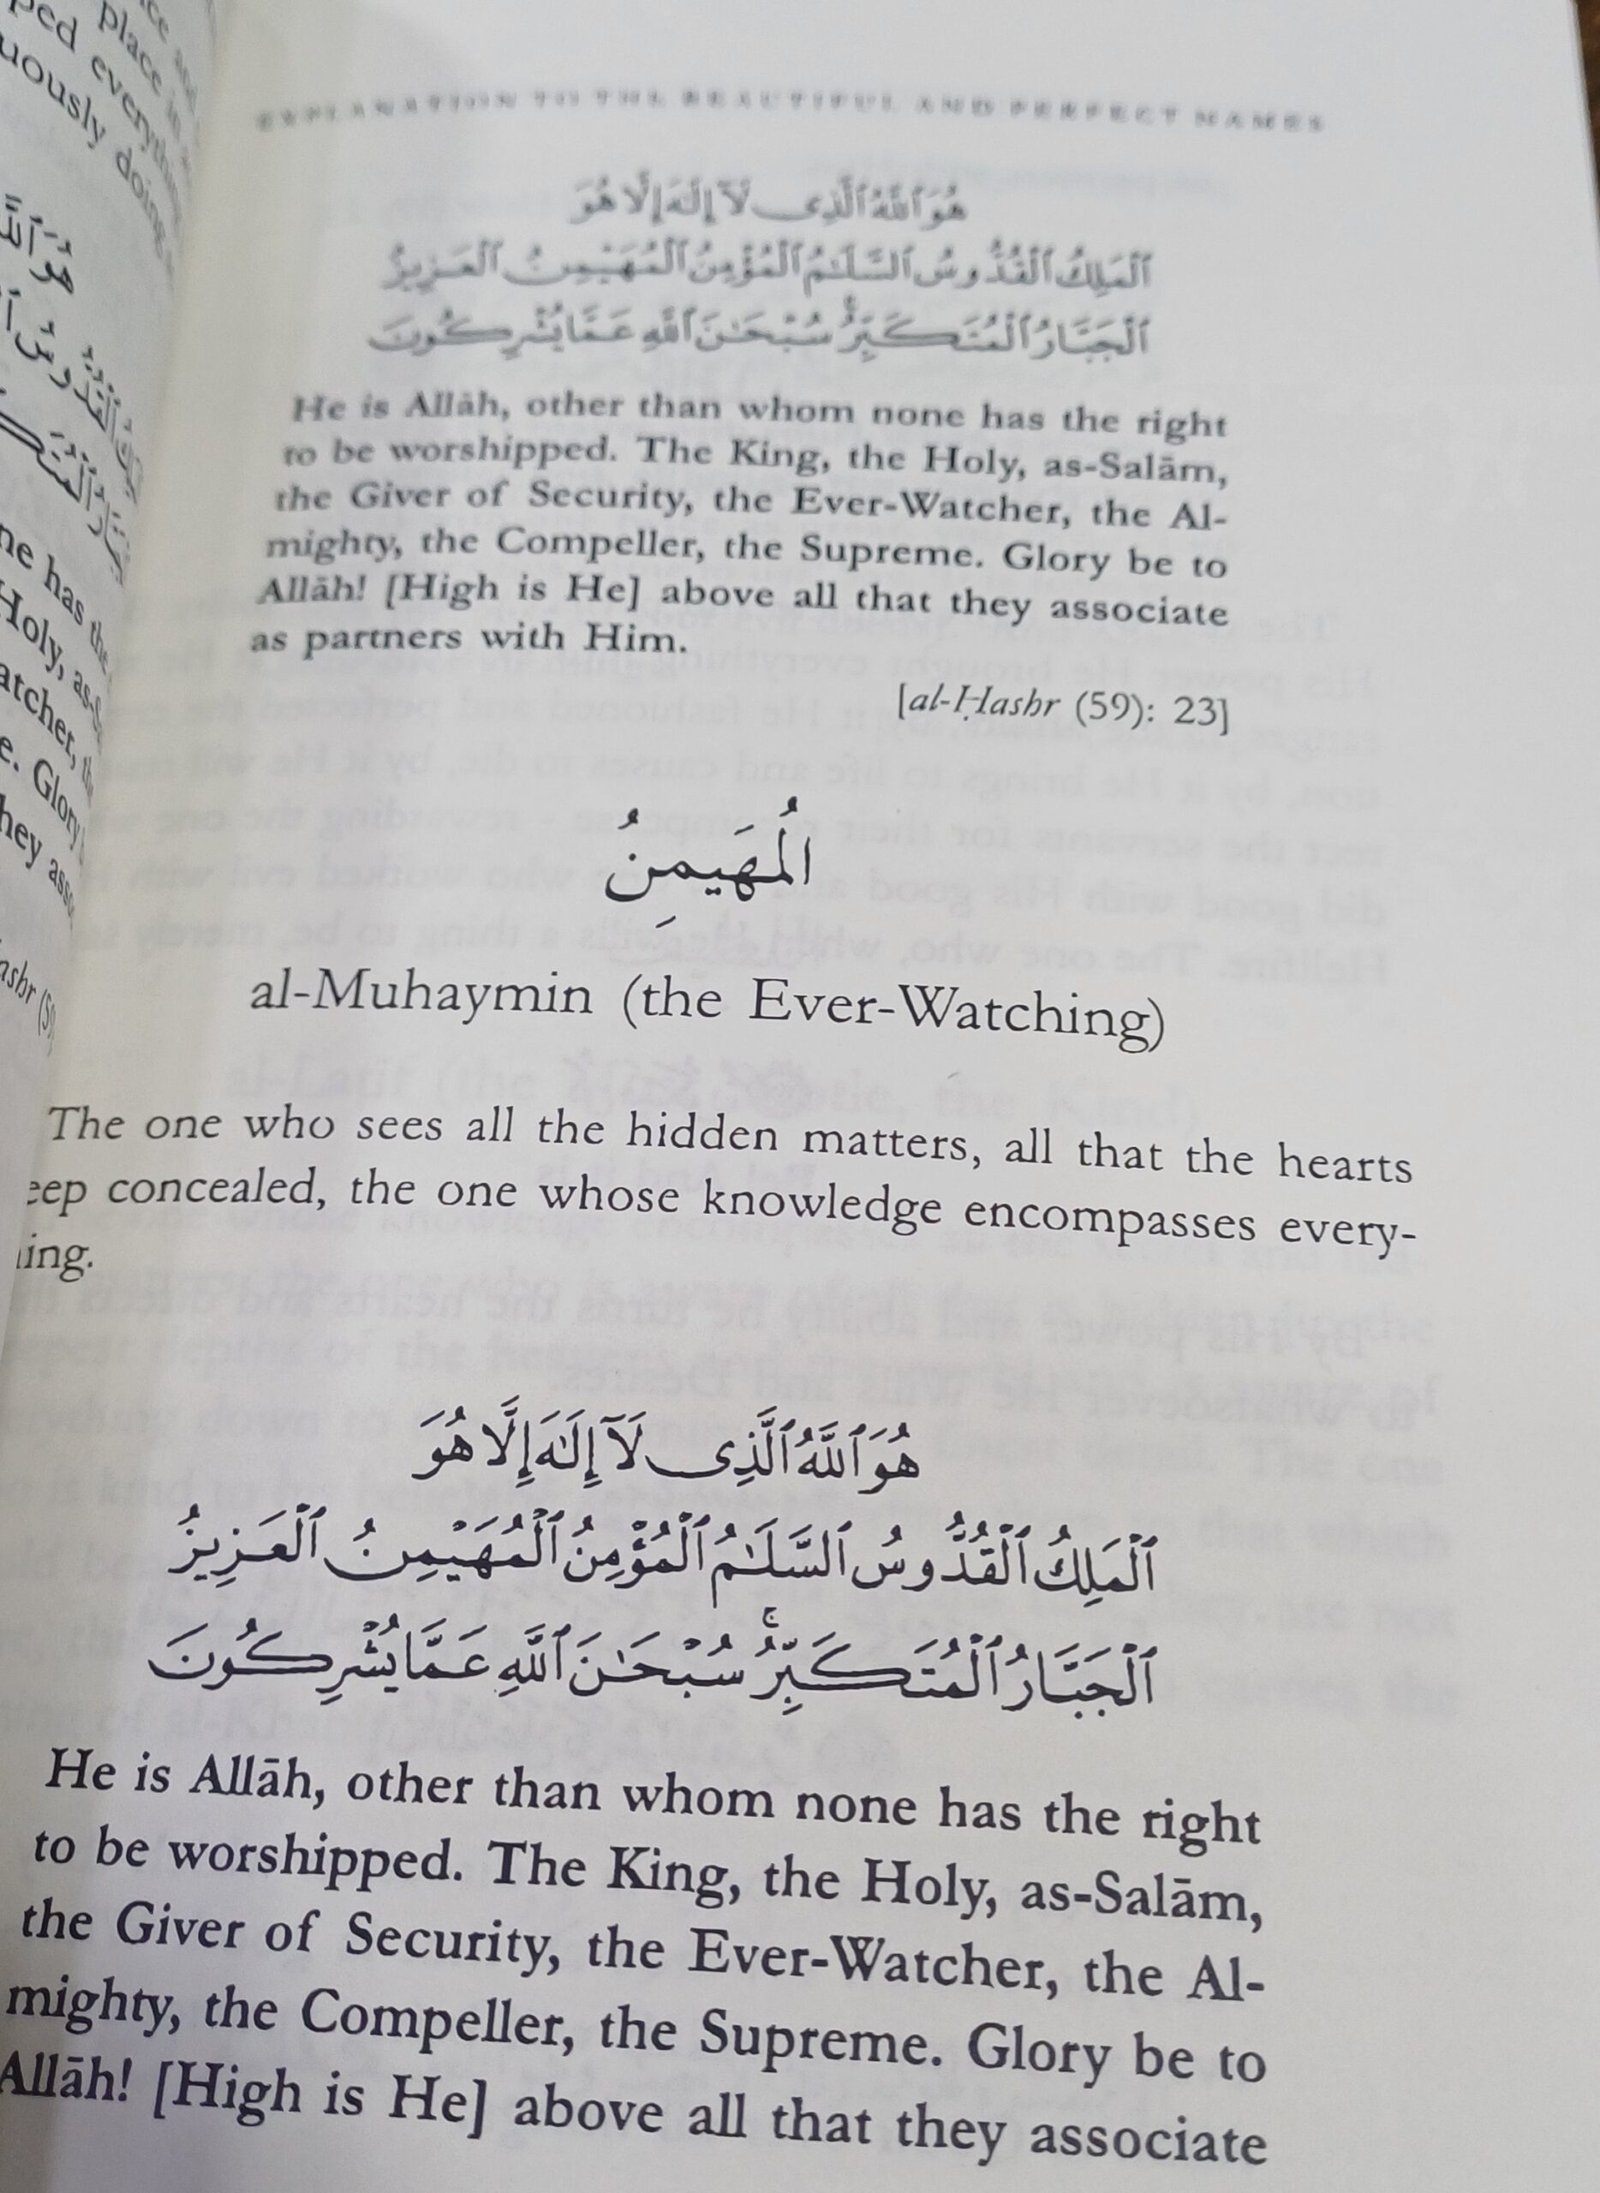 EXPLANATION TO THE BEAUTIFUL AND PERFECT NAMES
هُوَ ٱللَّهُ ٱلَّذِى لَآ إِلَٰهَ إِلَّا هُوَ
ٱلْمَلِكُ ٱلْقُدُّوسُ ٱلسَّلَٰمُ ٱلْمُؤْمِنُ ٱلْمُهَيْمِنُ ٱلْعَزِيزُ
ٱلْجَبَّارُ ٱلْمُتَكَبِّرُ ۚ سُبْحَٰنَ ٱللَّهِ عَمَّا يُشْرِكُونَ
He is Allāh, other than whom none has the right
to be worshipped. The King, the Holy, as-Salām,
the Giver of Security, the Ever-Watcher, the Al-
mighty, the Compeller, the Supreme. Glory be to
Allāh! [High is He] above all that they associate
as partners with Him.
[al-Ḥashr (59): 23]
الُمهَيمِنُ
al-Muhaymin (the Ever-Watching)
The one who sees all the hidden matters, all that the hearts
eep concealed, the one whose knowledge encompasses every-
ing.
هُوَ ٱللَّهُ ٱلَّذِى لَآ إِلَٰهَ إِلَّا هُوَ
ٱلْمَلِكُ ٱلْقُدُّوسُ ٱلسَّلَٰمُ ٱلْمُؤْمِنُ ٱلْمُهَيْمِنُ ٱلْعَزِيزُ
ٱلْجَبَّارُ ٱلْمُتَكَبِّرُ ۚ سُبْحَٰنَ ٱللَّهِ عَمَّا يُشْرِكُونَ
He is Allāh, other than whom none has the right
to be worshipped. The King, the Holy, as-Salām,
the Giver of Security, the Ever-Watcher, the Al-
mighty, the Compeller, the Supreme. Glory be to
Allāh! [High is He] above all that they associate